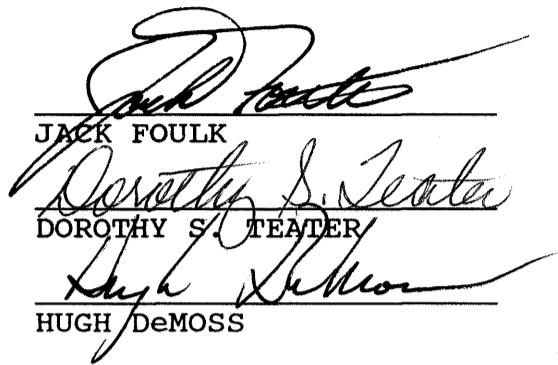 Jack Foulk
JACK FOULK
Dorothy S. Teater
DOROTHY S. TEATER
Hugh DeMoss
HUGH DeMOSS